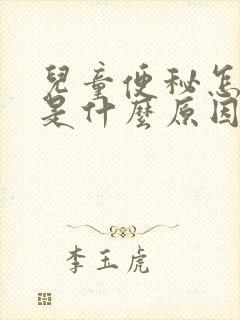 兒童便秘怎
是什麼原因
李玉虎